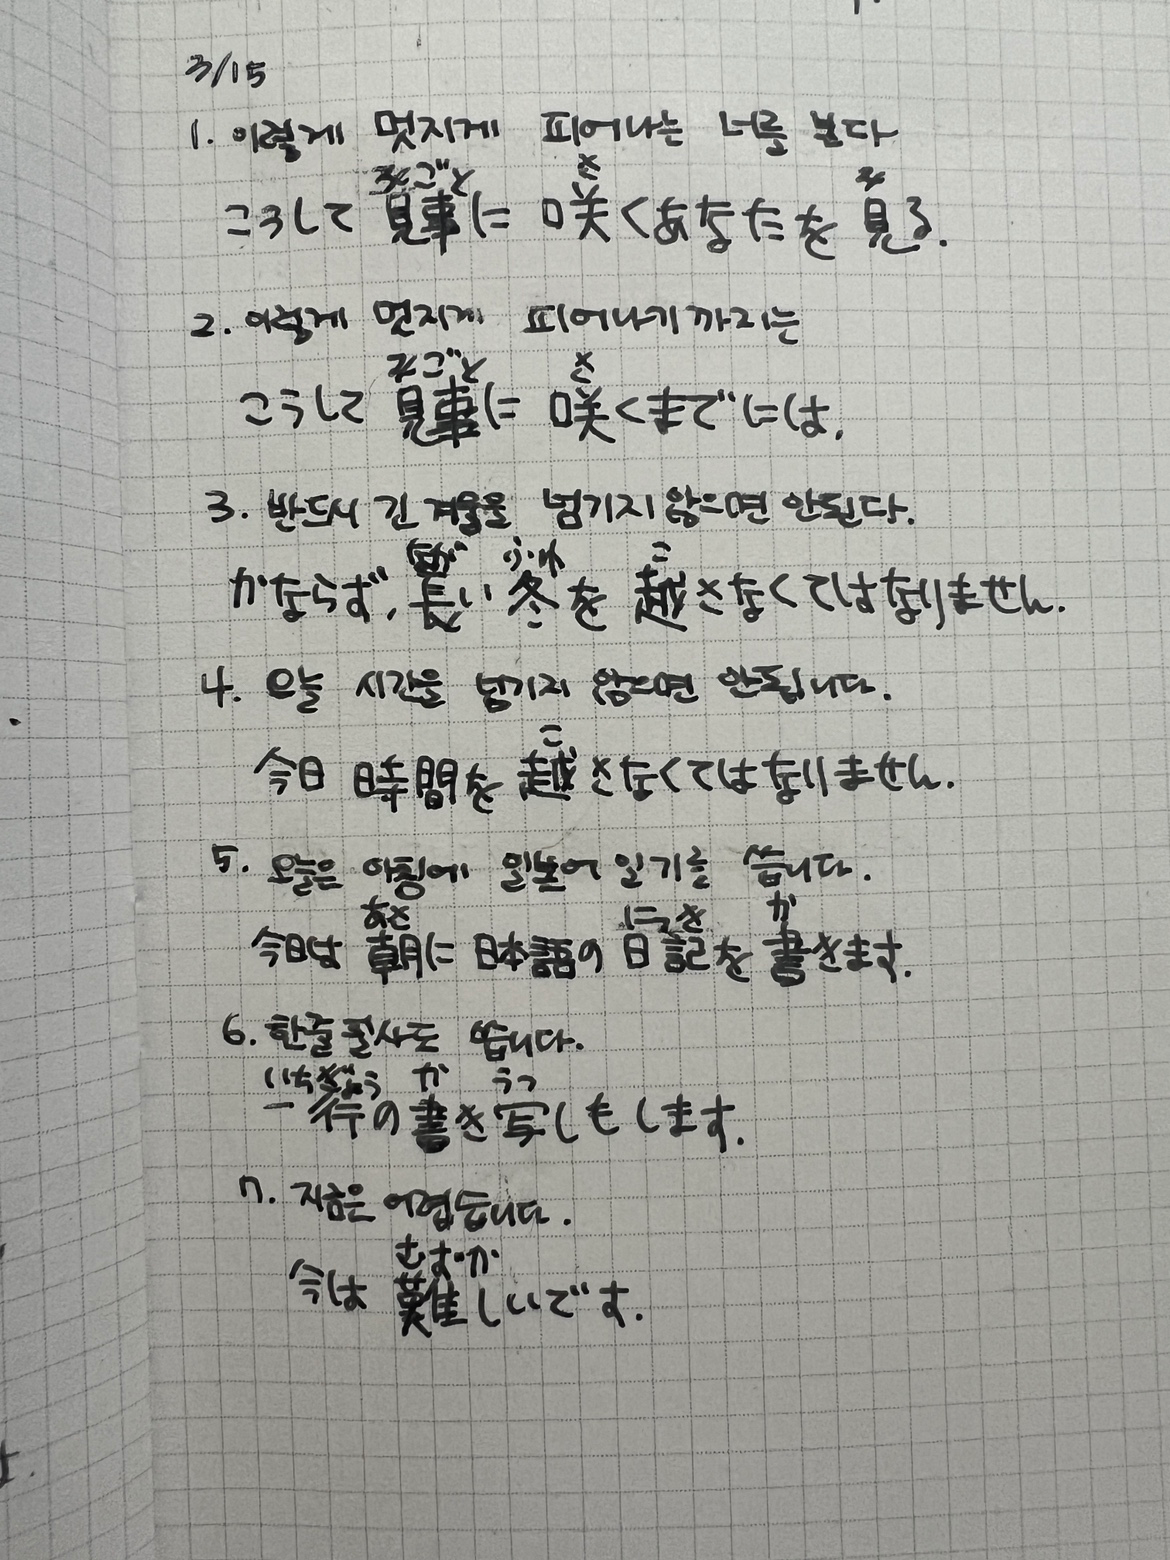 3/15
1. 이렇게 멋지게 피어나는 너를 보다
みごと さ み
こうして 見事に 咲くあなたを 見る.
2. 이렇게 멋지게 피어나기까지는
みごと さ
こうして 見事に 咲くまでには,
3. 반드시 긴 겨울을 넘기지 않으면 안된다.
なが ふゆ こ
かならず, 長い 冬を 越さなくてはなりません.
4. 오늘 시간을 넘기지 않으면 안됩니다.
こ
今日 時間を 越さなくてはなりません.
5. 오늘은 아침에 일본어 일기를 씁니다.
あさ にっき か
今日は 朝に 日本語の 日記を 書きます.
6. 한줄필사도 씁니다.
いちぎょう か うつ
一行の書き写しもします.
7. 지금은 어렵습니다.
むずか
今は 難しいです.